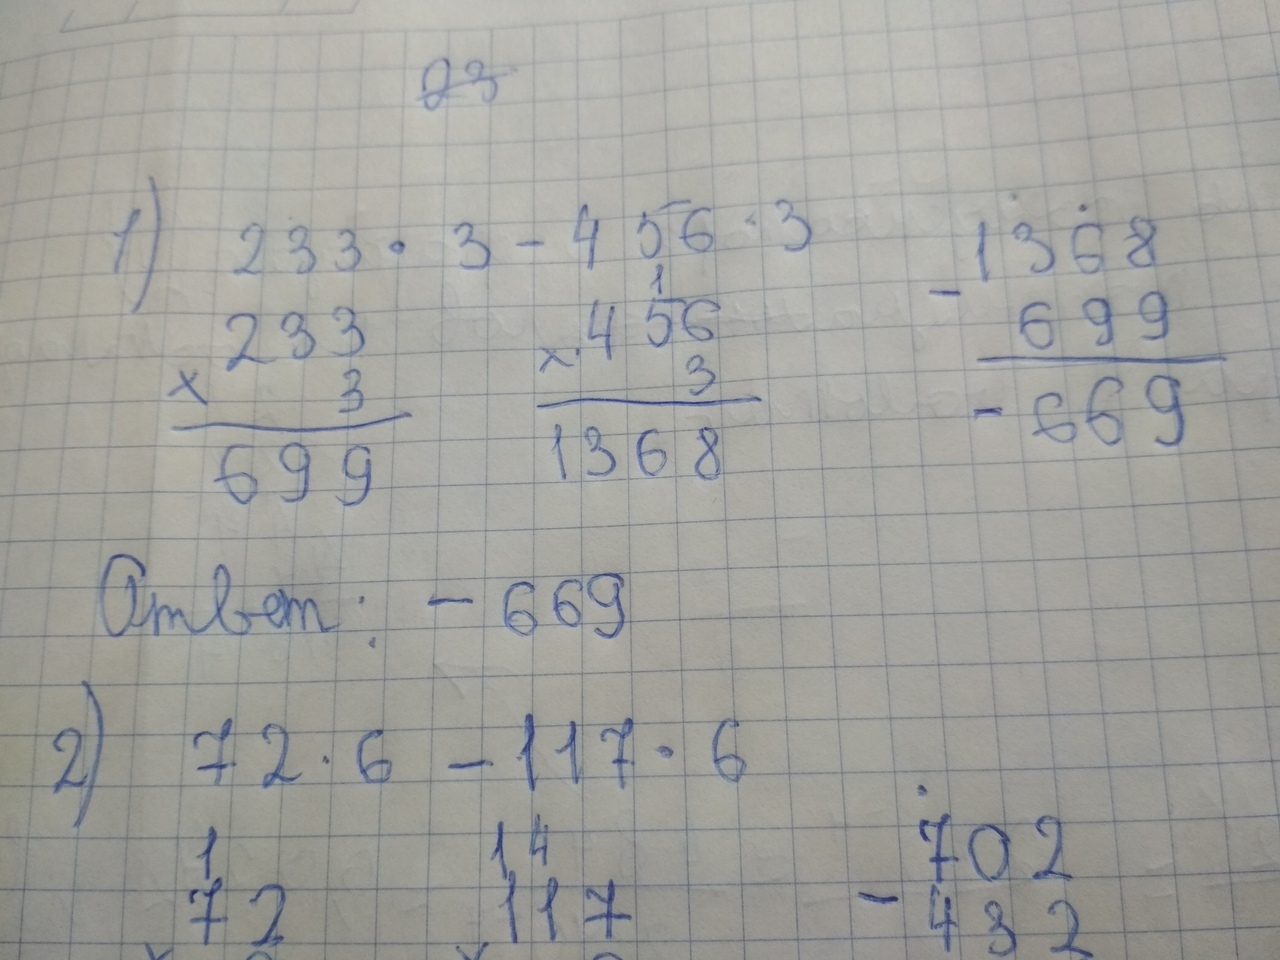 ДЗ
1) 233 · 3 - 456 · 3
233
× 3
699
1
456
× 3
1368
1368
- 699
- 669
Ответ: - 669
2) 72 · 6 - 117 · 6
1
72
14
117
702
- 432